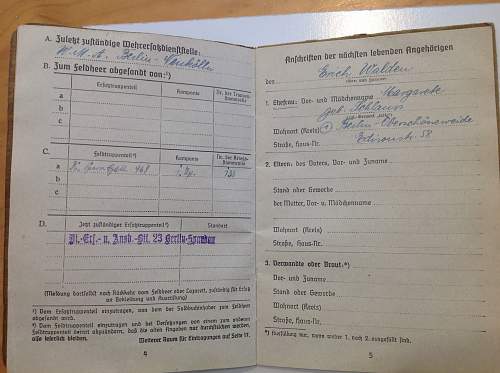 A. Zuletzt zuständige Wehrersatzdienststelle:
W. M. A. Berlin-Neukölln
B. Zum Feldheer abgesandt von:¹)
Ersatztruppenteil Kompanie Nr. der Truppenstammrolle
a
b
c
C. Feldtruppenteil²) Kompanie Nr. der Kriegsstammrolle
a 468 1. 133
b
c
D. Jetzt zuständiger Ersatztruppenteil²) Standort
Pi.-Ers.- u. Ausb.-Btl. 23 Berlin-Spandau
(Meldung dortselbst nach Rückkehr vom Feldheer oder Lazarett, zuständig für Ersatz an Bekleidung und Ausrüstung)
¹) Vom Ersatztruppenteil einzutragen, von dem der Soldbuchinhaber zum Feldheer
abgesandt wird.
²) Vom Feldtruppenteil einzutragen und bei Versetzungen von einem zum anderen
Feldtruppenteil derart abzuändern, daß die alten Angaben nur durchstrichen werden,
also leserlich bleiben.
Weiterer Raum für Eintragungen auf Seite 17.
4
Anschriften der nächsten lebenden Angehörigen
des Erich Walden
(Vor- und Zuname)
1. Ehefrau: Vor- und Mädchenname Margarete
geb.
Wohnort (Kreis) Berlin-Oberschöneweide
Straße, Haus-Nr. 58
2. Eltern: des Vaters, Vor- und Zuname
Stand oder Gewerbe
der Mutter, Vor- u. Mädchenname
Wohnort (Kreis)
Straße, Haus-Nr.
3. Verwandte oder Braut:*)
Vor- und Zuname
Stand oder Gewerbe
Wohnort (Kreis)
Straße, Haus-Nr.
*) Ausfüllung nur, wenn weder 1. noch 2. ausgefüllt sind.
5